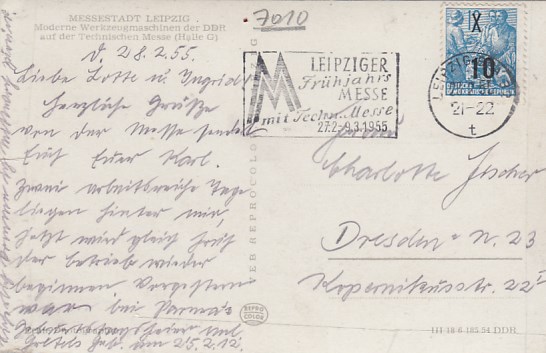 MESSESTADT LEIPZIG
Moderne Werkzeugmaschinen der DDR
auf der Technischen Messe (Halle G)
7010
d. 28.2.55.
Liebe Lotte u. Ingrid!
Herzliche Grüße
von der Messe sendet
Euch Euer Karl.
Zwei arbeitsreiche Tage
liegen hinter mir,
jetzt wird gleich früh
der Betrieb wieder
beginnen. Vorgestern
war bei
am 25.2.12.
LEIPZIGER
Frühjahrs
MESSE
mit Techn. Messe
27.2.-9.3.1955
10
21-22
t
Charlotte
Dresden N. 23
Kopernikusstr. 22
REPROCOLOR
REPRO
COLOR
III 18 6 185 54 DDR